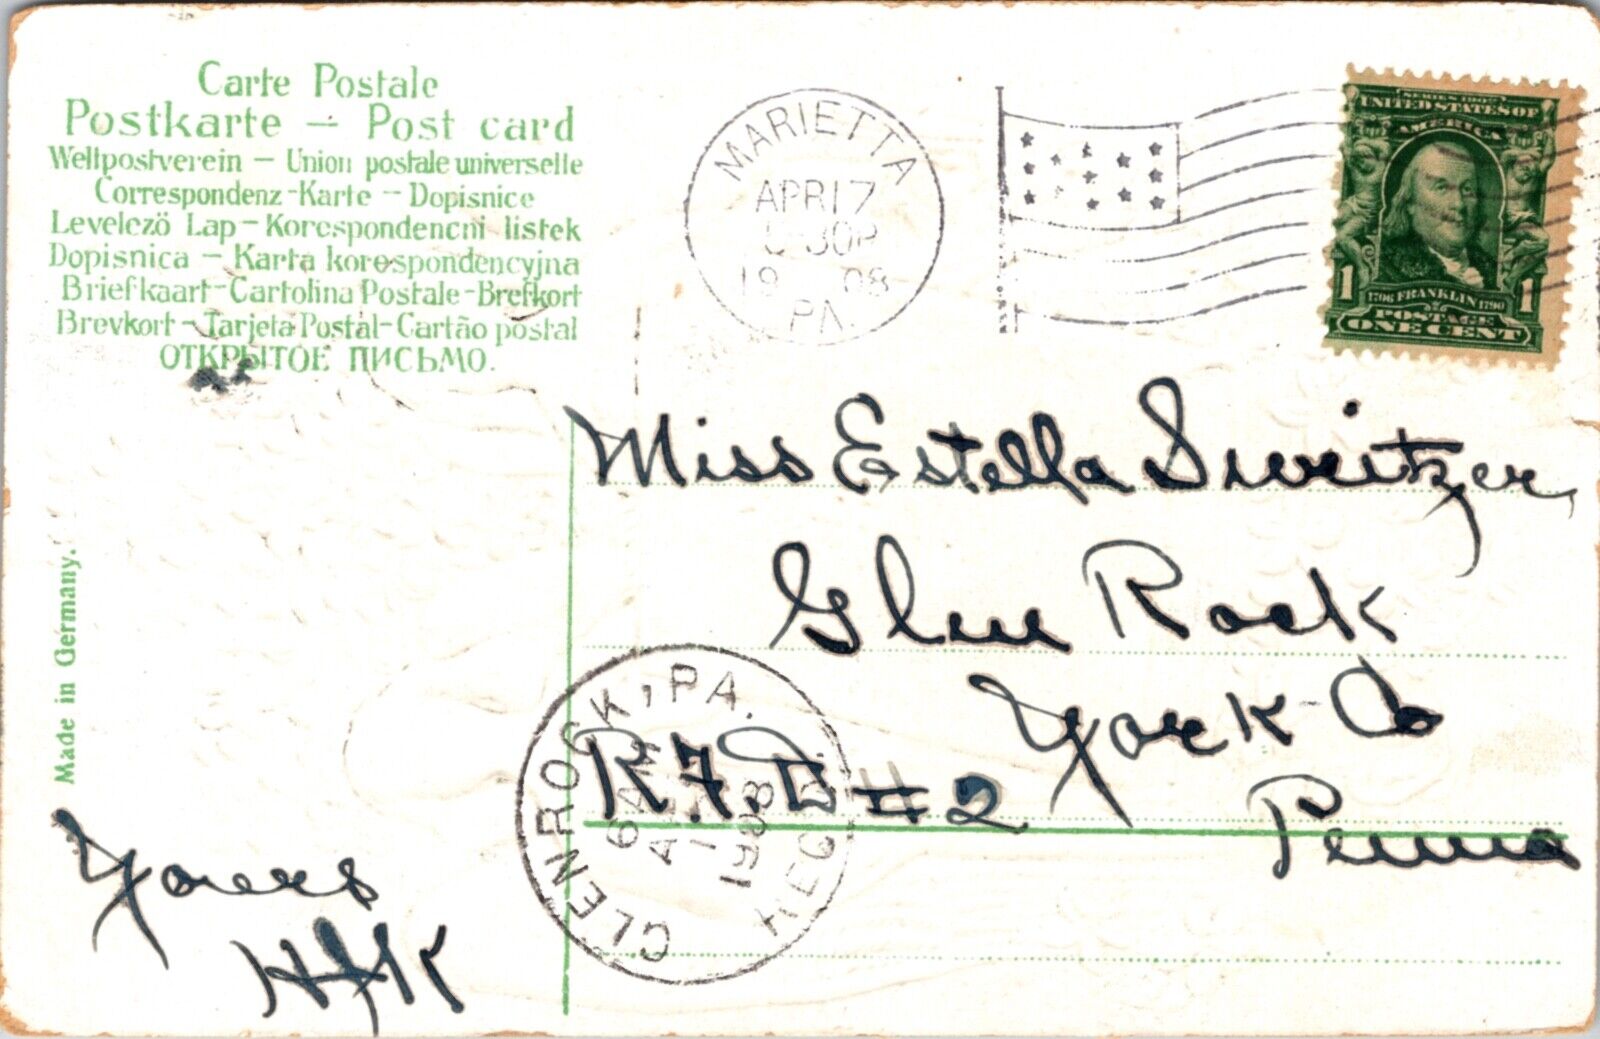 Carte Postale
Postkarte – Post card
Weltpostverein – Union postale universelle
Correspondenz-Karte – Dopisnice
Levelező Lap – Korespondencni listek
Dopisnica – Karta korespondencyjna
Briefkaart – Cartolina Postale – Brefkort
Brevkort – Tarjeta Postal – Cartão postal
ОТКРЫТОЕ ПИСЬМО.
MARIETTA
APR 17
30P
1908
PA.
SERIES 1902
UNITED STATES OF
AMERICA
1706 FRANKLIN 1790
1 1
POSTAGE
ONE CENT
Miss Estella Sweitzer,
Glen Rock
York Co
R.F.D #2
Penna
GLENROCK, PA.
6 AM
1908
REC'D.
Made in Germany.
Yours
HJK